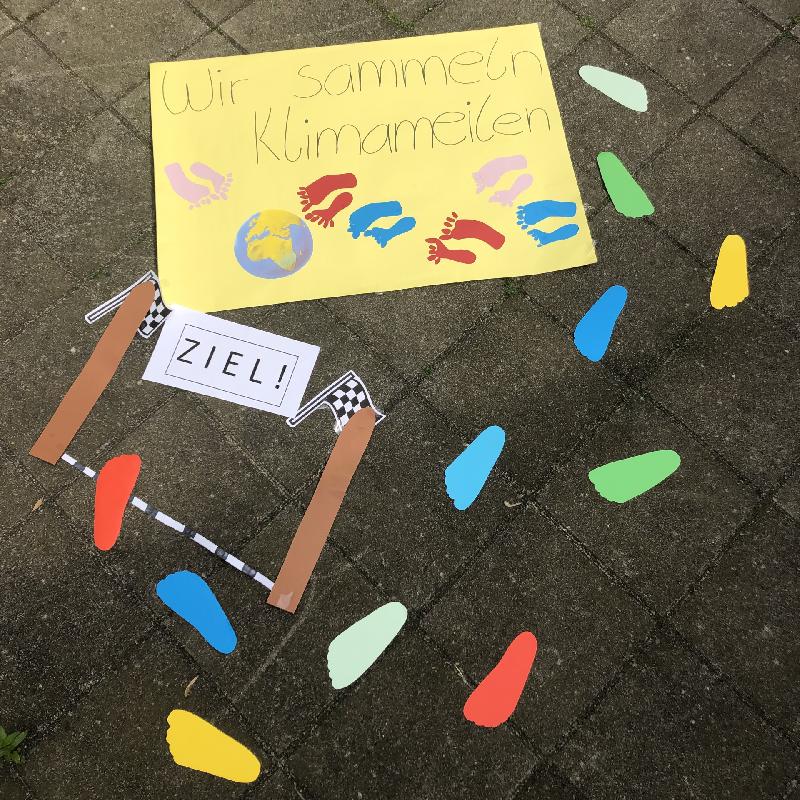 Wir sammeln
Klimameilen
ZIEL!